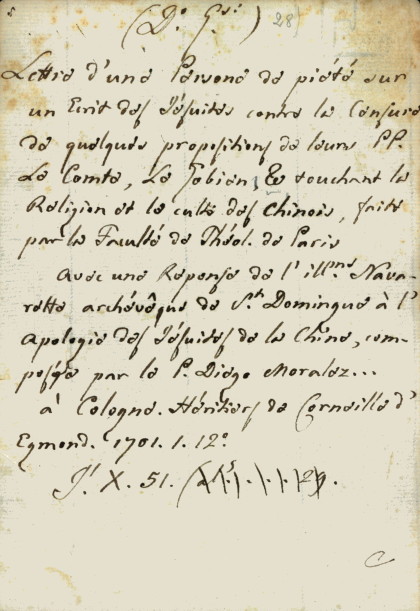 (D.° G.si) 28)
Lettre d'une Persone de piété sur
un Ecrit des Jésuites contre la Censure
de quelques propositions de leurs PP.
Le Comte, Le Gobien, &c touchant la
Religion et le culte des Chinois, faite
par la Faculté de Théol. de Paris
Avec une Reponse de l'ill.me Nava-
rette archévêque de S.t Domingue à l'
Apologie des Jésuites de la Chine, com-
posée par le P. Diégo Moralez...
à Cologne. Héritiers de Corneille d'
Egmond. 1701. 1. 12.°
X. 51.
C